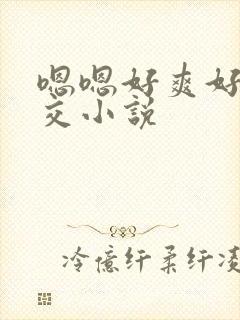 嗯嗯好爽好
交小説
冷億纤柔纤凌